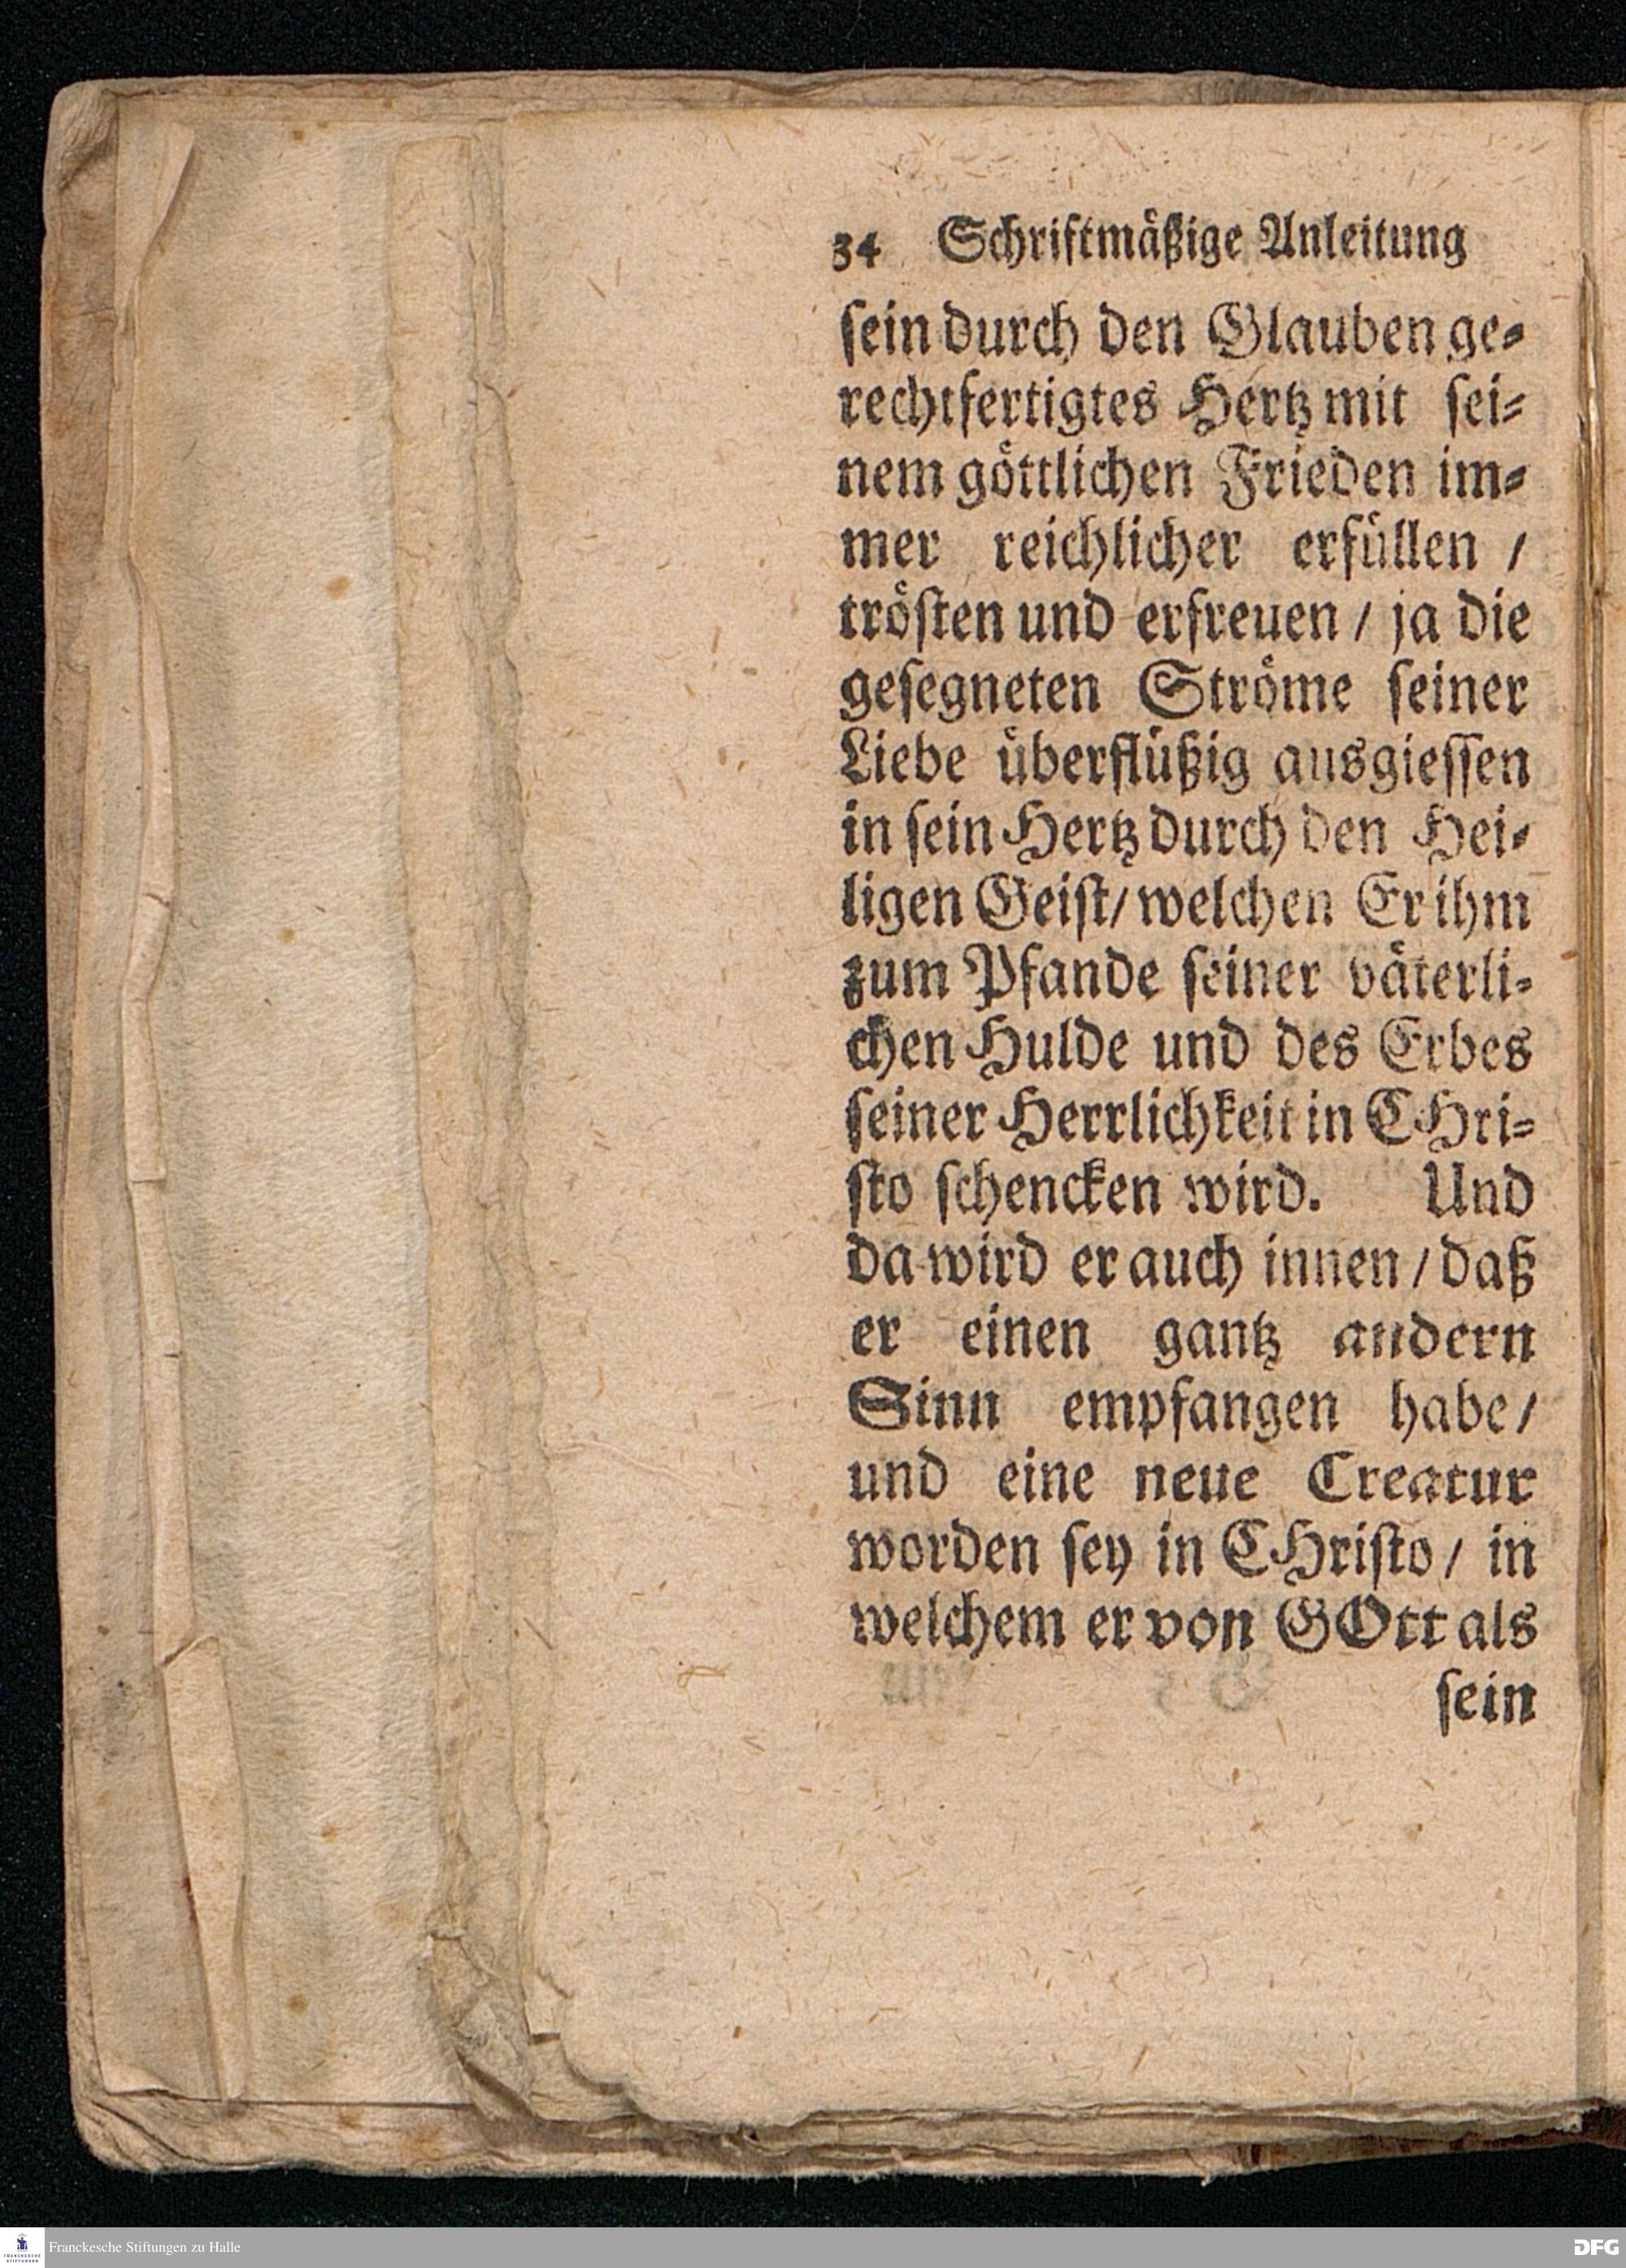 34 Schriftmäßige Anleitung
sein durch den Glauben ge-
rechtfertigtes Hertz mit sei-
nem göttlichen Frieden im-
mer reichlicher erfüllen /
trösten und erfreuen / ja die
gesegneten Ströme seiner
Liebe überflüßig ausgiessen
in sein Hertz durch den Hei-
ligen Geist / welchen Er ihm
zum Pfande seiner väterli-
chen Hulde und des Erbes
seiner Herrlichkeit in CHri-
sto schencken wird. Und
da wird er auch innen / daß
er einen gantz andern
Sinn empfangen habe /
und eine neue Creatur
worden sey in CHristo / in
welchem er von GOtt als
sein
FRANCKESCHE STIFTUNGEN
Franckesche Stiftungen zu Halle
DFG